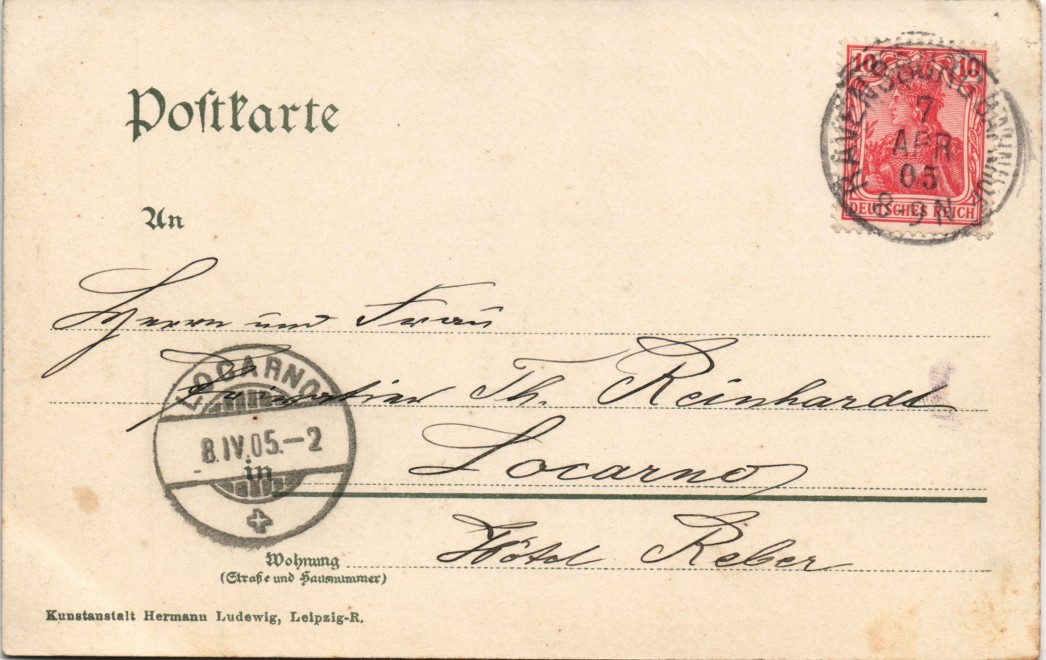 Postkarte
10 10
DEUTSCHES REICH
RAVENSBURG BAHNHOF
7
APR
05
8 9 N
An
Herrn und Frau
Privatier Th. Reinhardt
LOCARNO
8.IV.05.-2
in
Locarno
Hôtel Reber
Wohnung
(Straße und Hausnummer)
Kunstanstalt Hermann Ludewig, Leipzig-R.